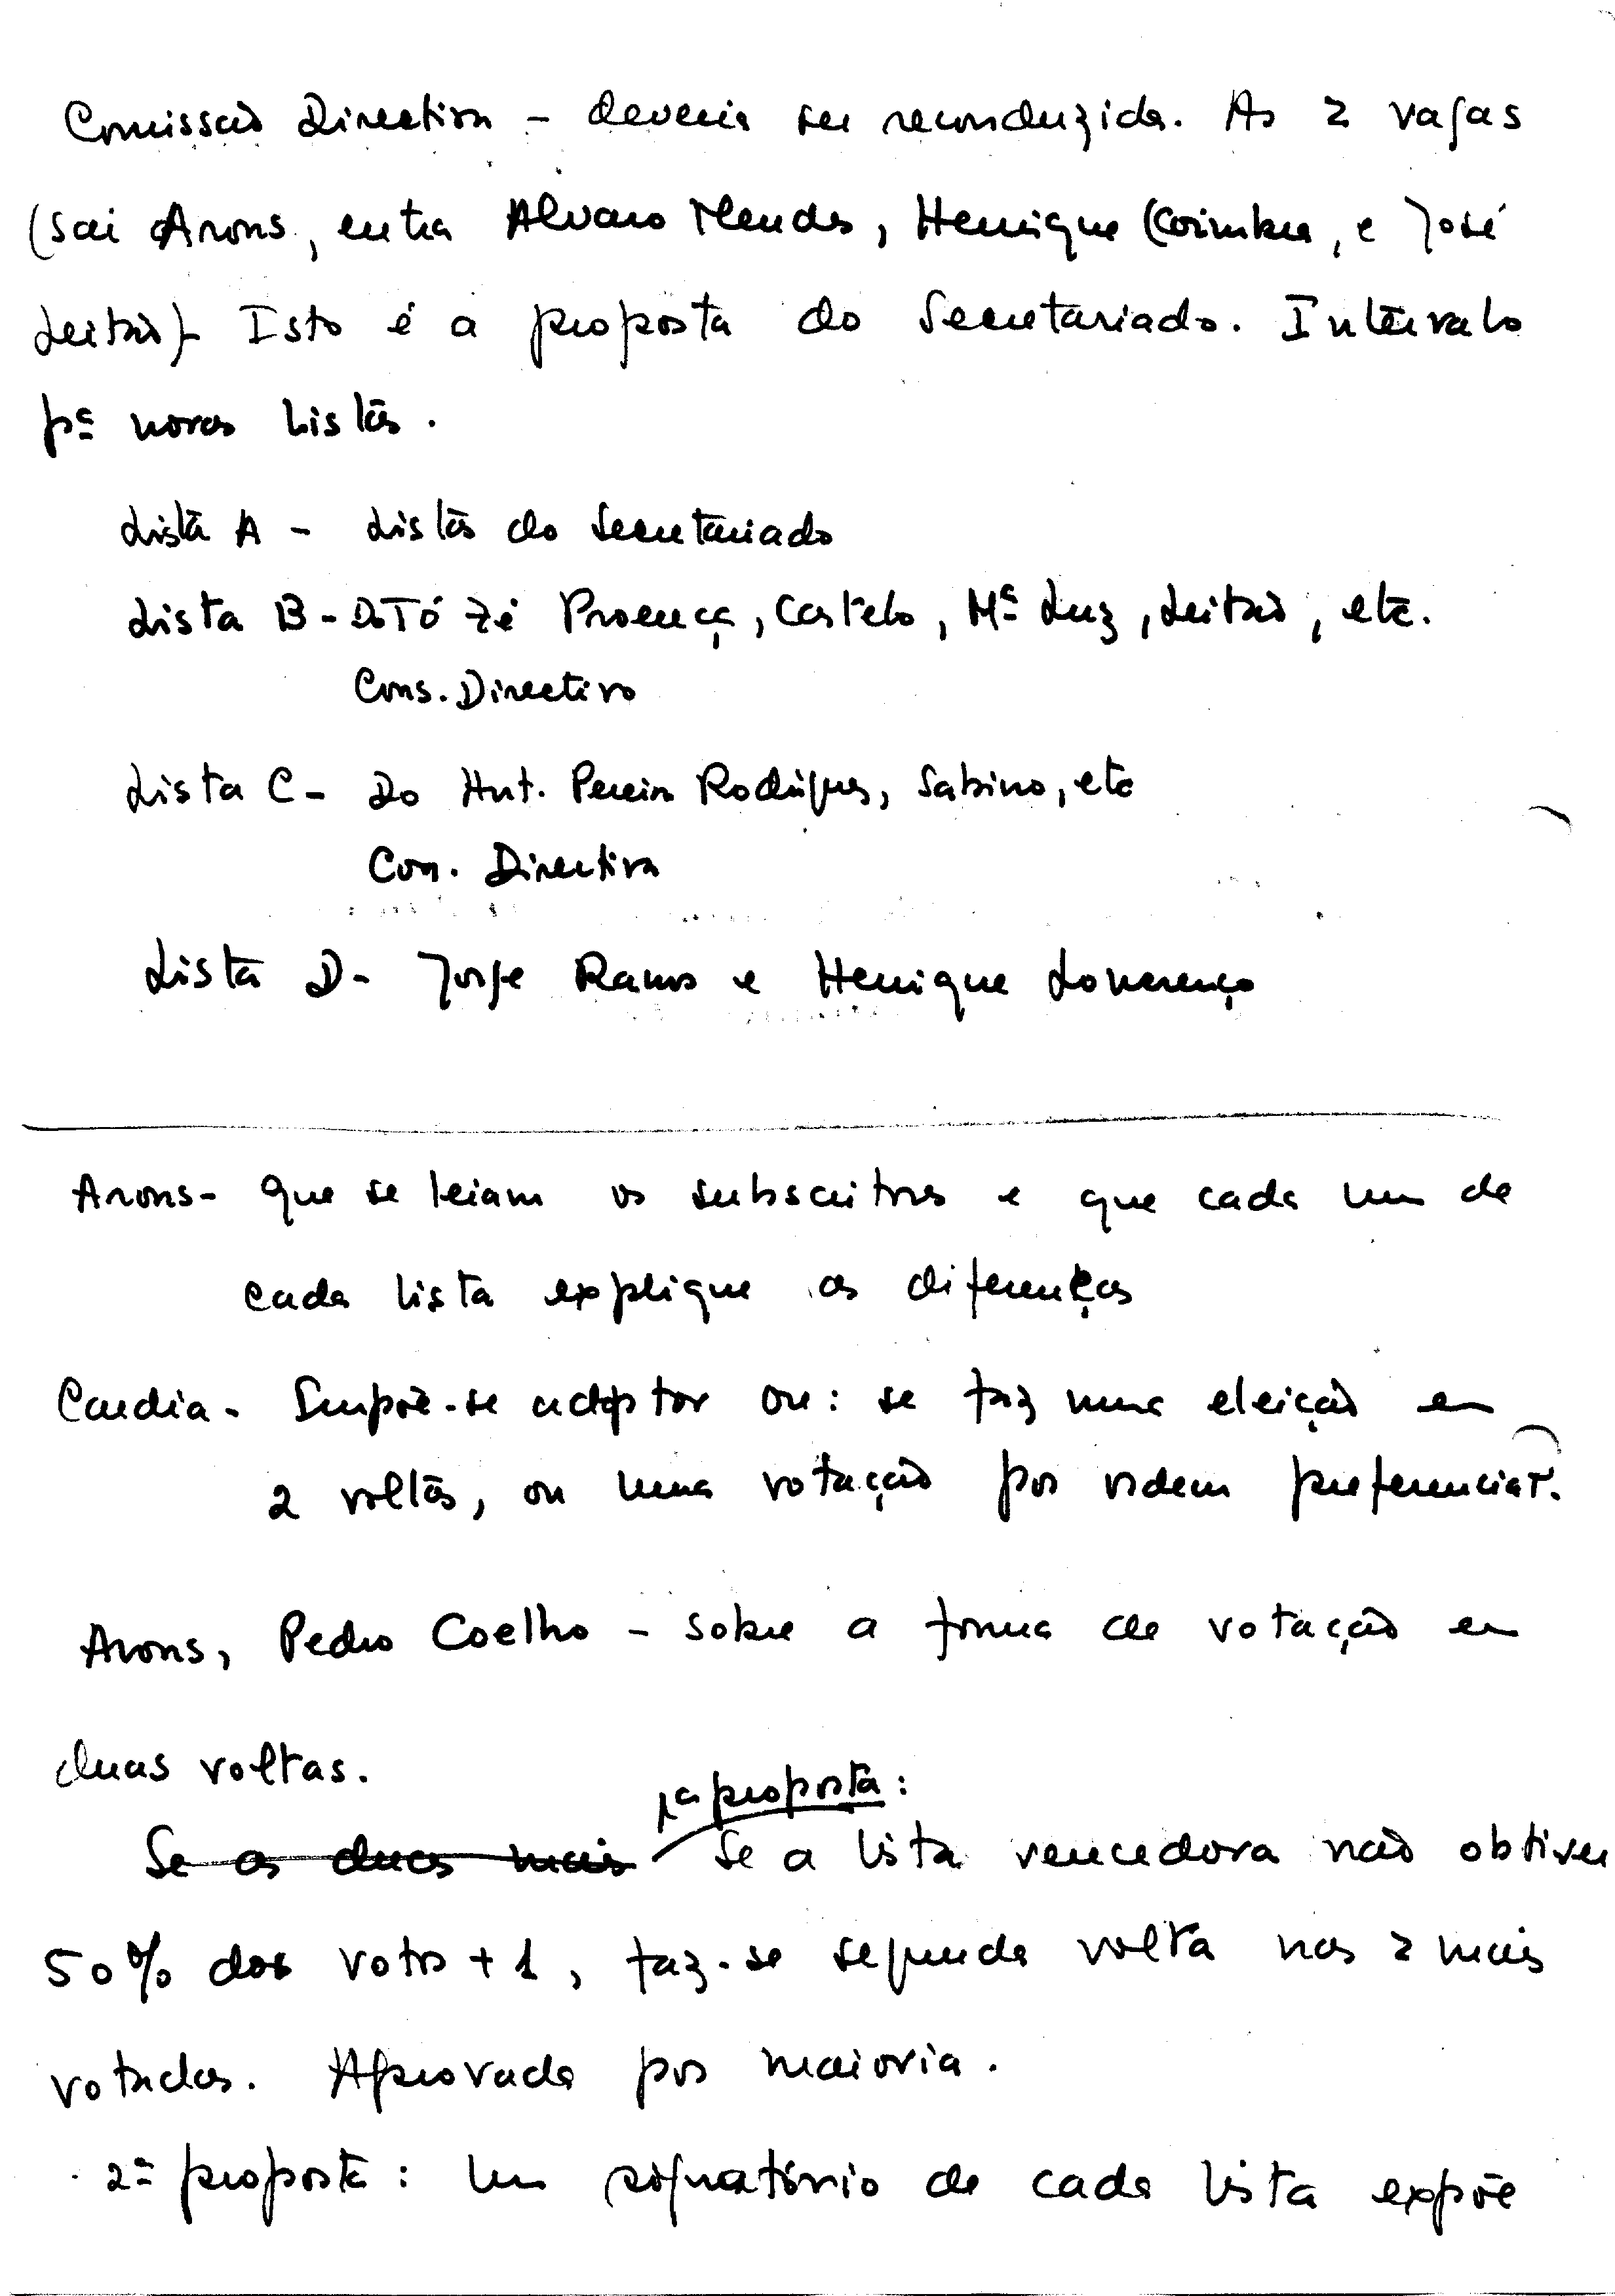 Comissão Directiva - deveria ser reconduzida. As 2 vagas
(sai Arons, entra Alvaro Mendes, Henrique (Coimbra, e José
Leitão)- Isto é a proposta do Secretariado. Intervalo
pª novas listas.
Lista A - Listas do Secretariado
Lista B - Do Tó Zé Proença, Castelo, Mª Luz, Leitão, etc.
Cons. Directivo
Lista C - Do Ant. Pereira Rodrigues, Sabino, etc
Com. Directiva
Lista D - Jorge Ramos e Henrique Lourenço
Arons - que se leiam os subscritores e que cada um de
cada lista explique as diferenças
Cardia - Impõe-se adoptar ou: se faz uma eleição em
2 voltas, ou uma votação por ordem preferencial.
Arons, Pedro Coelho - sobre a forma de votação em
duas voltas.
1ª proposta:
Se as duas mais Se a lista vencedora não obtiver
50% dos votos + 1, faz-se segunda volta nas 2 mais
votadas. Aprovada por maioria.
2ª proposta: Um signatório de cada lista expõe